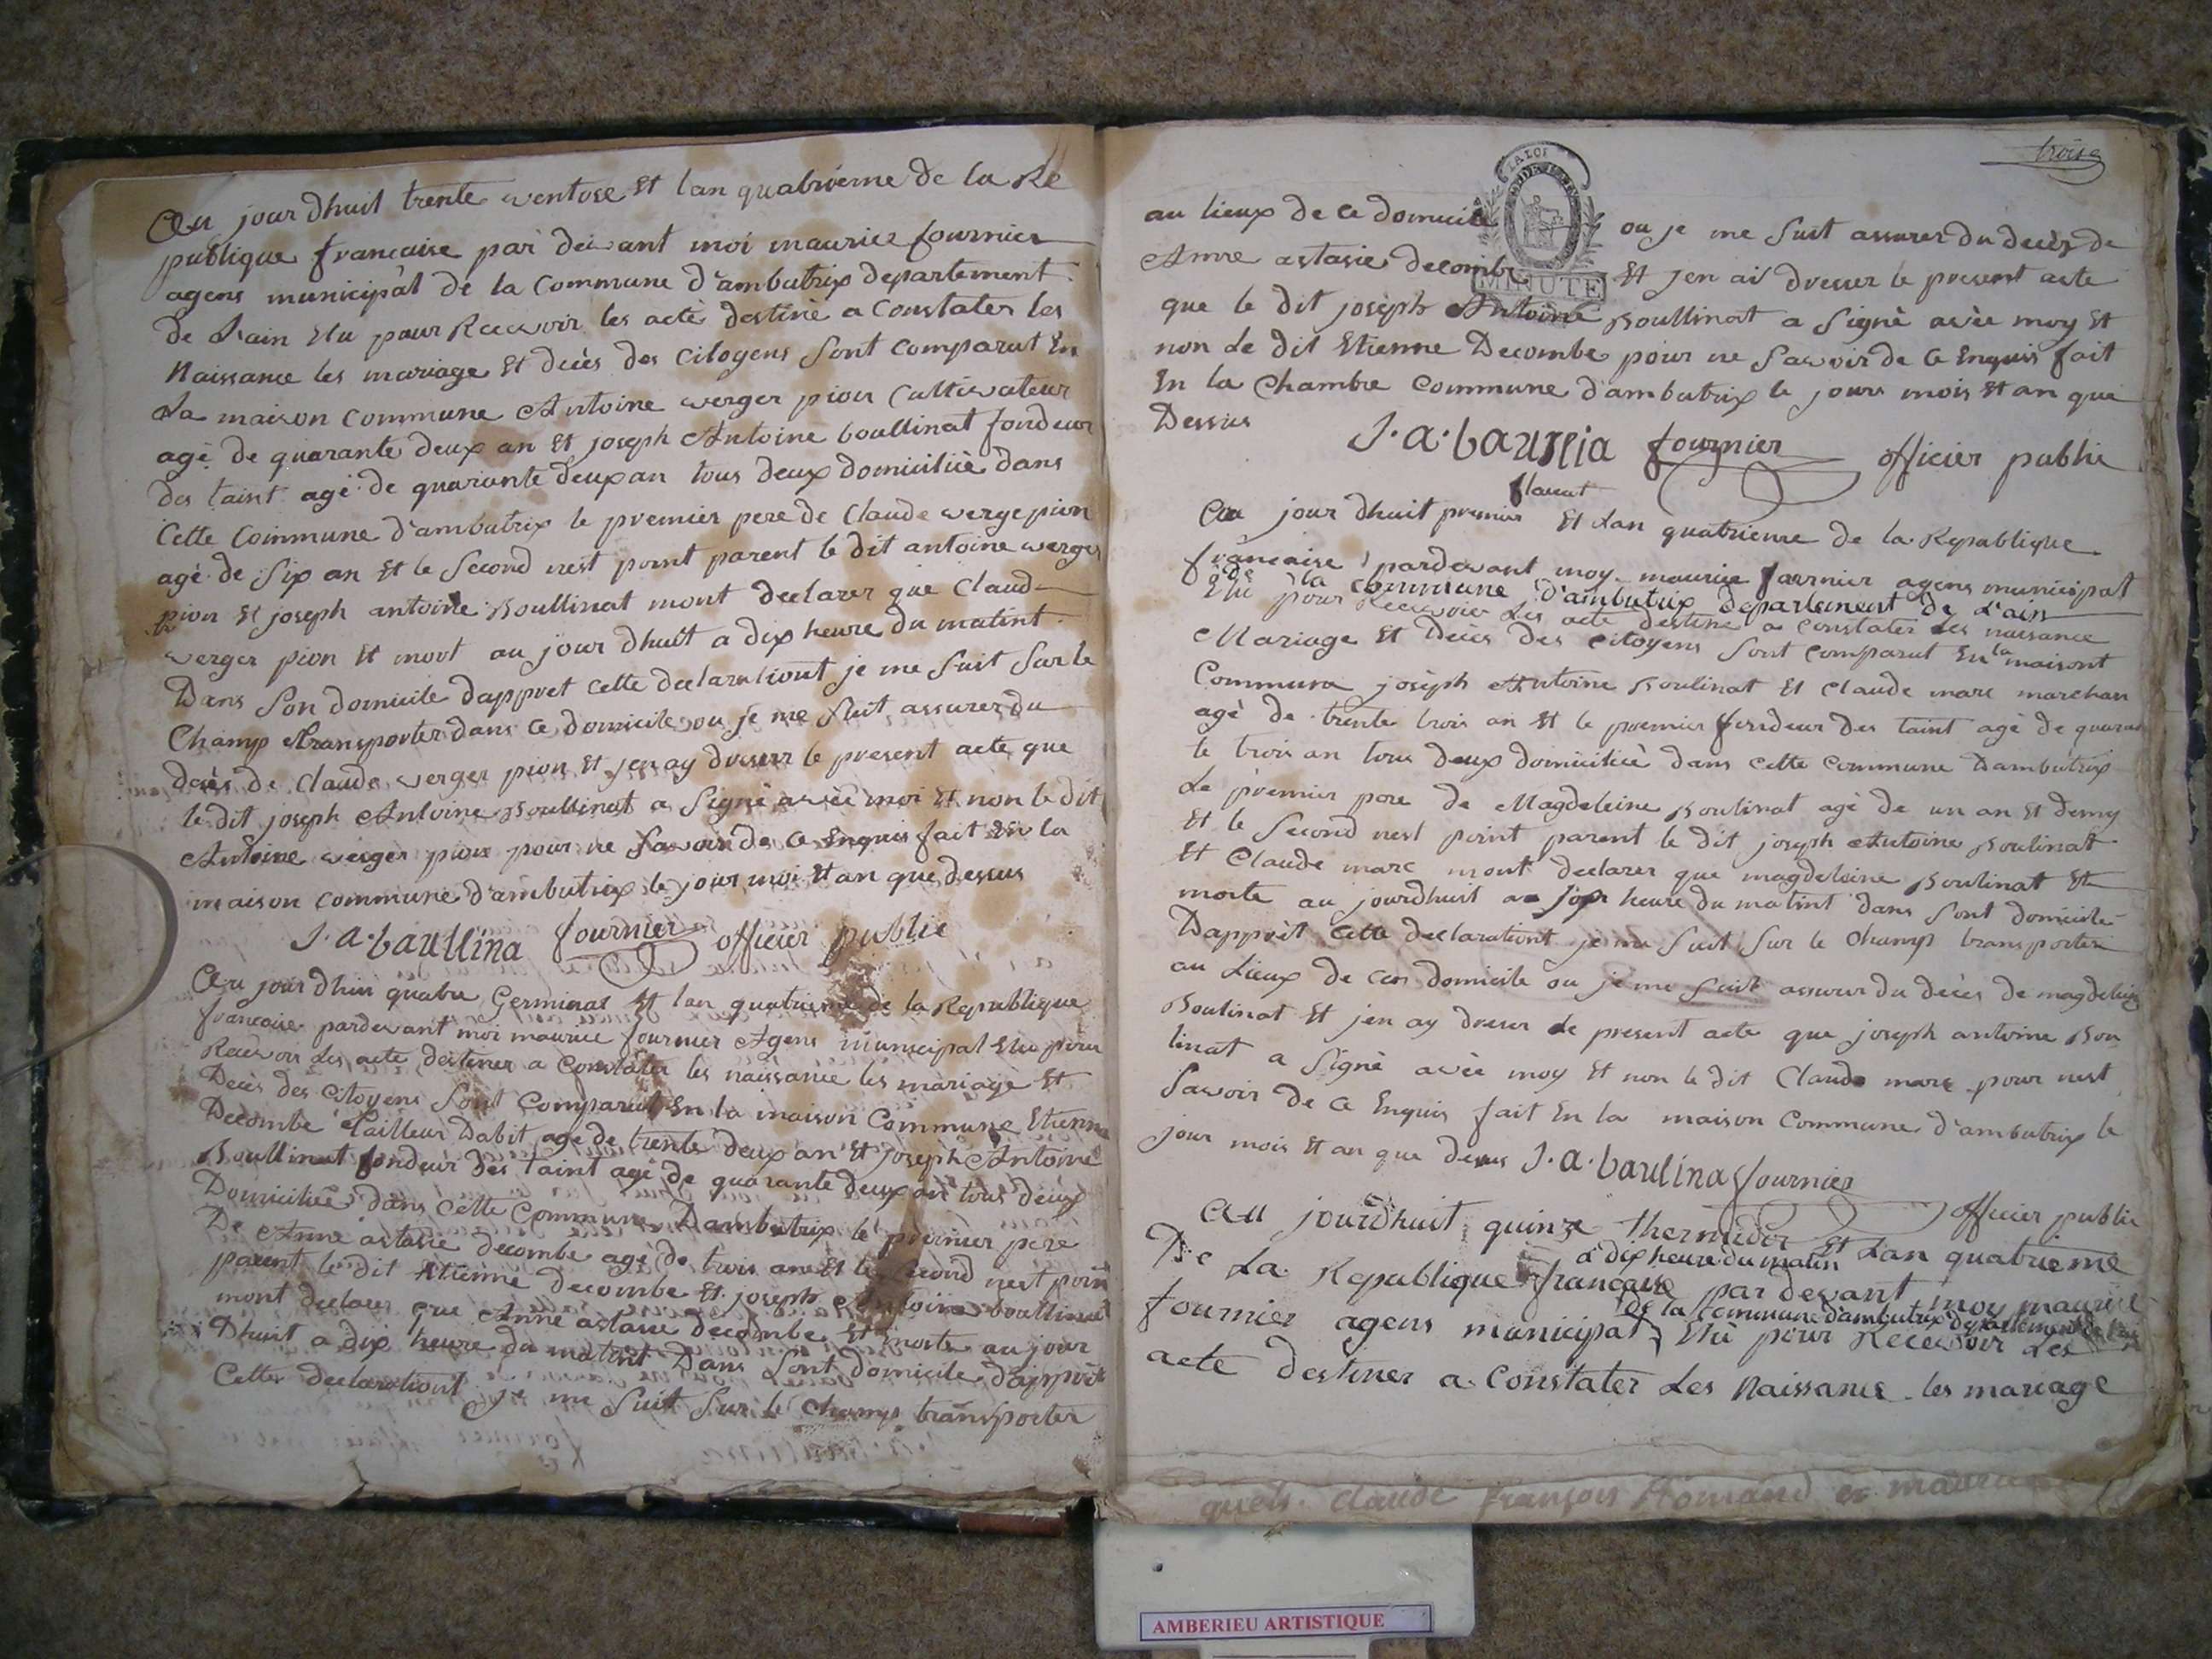 Au jour dhuit trente ventose Et lan quatrieme de la Re
publique francaise par devant moi maurice fournier
agens municipal de la Commune d'ambutrix departement
De Lain Elu pour Recevoir les acte destiné a Constater les
Naissance les mariage Et décès des Citoyens sont comparut En
La maison commune Antoine verger pion Cultivateur
agé de quarante deux an Et joseph Antoine boullinat fondeur
des taint agé de quarante deux an tous deux domicilié dans
Cette Commune d'ambutrix le premier pere de Claude verge pion
agé de Six an Et le Second nest point parent le dit antoine verger
pion Et joseph antoine Boullinat mont declarer que Claud
verger pion Et mort au jour dhuit a dix heure du matint
Dans Son domicile dappret cette declarationt je me Suit Sur le
Champ transporter dans Ce domicile ou je me Suit assurer du
decés de Claude verger pion Et jen ay dresser le present acte que
le dit joseph Antoine Boullinat a Signé avèe moi Et non le dit
Antoine verger pion pour ne Savoir de Ce Enquis fait En la
maison commune d'ambutrix le jour moi Et an que dessus
J. a. baullina fournier officier public
Au jour dhui quatre Germinal Et lan quatrieme de la Republique
francoise pardevant moi maurice fournier Agens municipal Elu pour
Recevoir Les acte destiner a Constater les naissance les mariage Et
Decès des Citoyens Sont Comparut En la maison Commune Etienne
Decombe Tailleur Dabit agé de trente deux an Et joseph Antoine
Boullinat fondeur des taint agé de quarante deux an tous deux
Domicilié dans Cette Commune Dambutrix le premier pere
De Anne astasie decombe agé de trois an Et le Second nest point
parent le dit Etienne decombe Et joseph Antoine boullinat
mont declarer que Anne astasie decombe Et morte au jour
Dhuit a dix heure du matint Dans Sont domicile dapprèt
Cette declarationt je me Suit Sur le Champ transporter
troise
LA LOI
au lieux de Ce domicile ou je me Suit assurer du decès de
Anne astasie decombe Et jen ai dresser le present acte
MINUTE
que le dit joseph Antoine Boullinat a Signè avèe moy Et
non Le dit Etienne Decombe pour ne Savoir de Ce Enquis fait
En la Chambre Commune d'ambutrix le jours mois Et an que
Dessus
J. a. baullia fournier officier public
Au jour dhuit premier floreat Et Lan quatrieme de la Republique
francaise pardevant moy maurice fournier agens municipal
de la commune d'ambutrix departement de L'ain
Elu pour Recevoir Les acte destine a constater Les naissance
Mariage Et Décès Des Citoyens Sont Comparut En la maisont
Commune joséph Antoine Boulinat Et Claude marc marchan
agé de trente trois an Et le premier fondeur Des taint agé de quaran
te trois an tous deux domicilié dans Cette Commune Dambutrix
Le premier pere de Magdeleine Boulinat agé de un an Et demy
Et le Second nest point parent le dit joseph Antoine Boulinat
Et Claude marc mont declarer que magdeleine Boulinat Et
morte au jourdhuit a heure du matint dans Sont domicile
Dapprèt Cette declarationt je me Suit Sur le Champ transporter
au Lieux de Ces domicile ou je me Suit assurer du décès de magdeleine
Boulinat Et jen ay dresser Le present acte que joseph antoine Bou
linat a Signè avèe moy Et non le dit Claude marc pour nest
Savoir de Ce Enquis fait En la maison Commune d'ambutrix le
jour mois Et an que desus J. a. baulina fournier
officier public
Au jourdhuit quinze thermidor Et Lan quatrieme
à dix heure du matin
De La Republique francaise par devant moy maurice
de la commune d'ambutrix departement de l'ain
fournier agens municipal Elu pour Recevoir Les
acte destiner a Constater Les Naissance les mariage
quels. Claude françois
AMBERIEU ARTISTIQUE